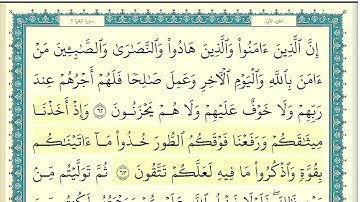 الجزء الأول سورة البقرة
إِنَّ ٱلَّذِينَ ءَامَنُوا۟ وَٱلَّذِينَ هَادُوا۟ وَٱلنَّصَٰرَىٰ وَٱلصَّٰبِـِٔينَ مَنْ
ءَامَنَ بِٱللَّهِ وَٱلْيَوْمِ ٱلْءَاخِرِ وَعَمِلَ صَٰلِحًا فَلَهُمْ أَجْرُهُمْ عِندَ
رَبِّهِمْ وَلَا خَوْفٌ عَلَيْهِمْ وَلَا هُمْ يَحْزَنُونَ ٦٢ وَإِذْ أَخَذْنَا
مِيثَٰقَكُمْ وَرَفَعْنَا فَوْقَكُمُ ٱلطُّورَ خُذُوا۟ مَآ ءَاتَيْنَٰكُم
بِقُوَّةٍ وَٱذْكُرُوا۟ مَا فِيهِ لَعَلَّكُمْ تَتَّقُونَ ٦٣ ثُمَّ تَوَلَّيْتُم مِّنۢ